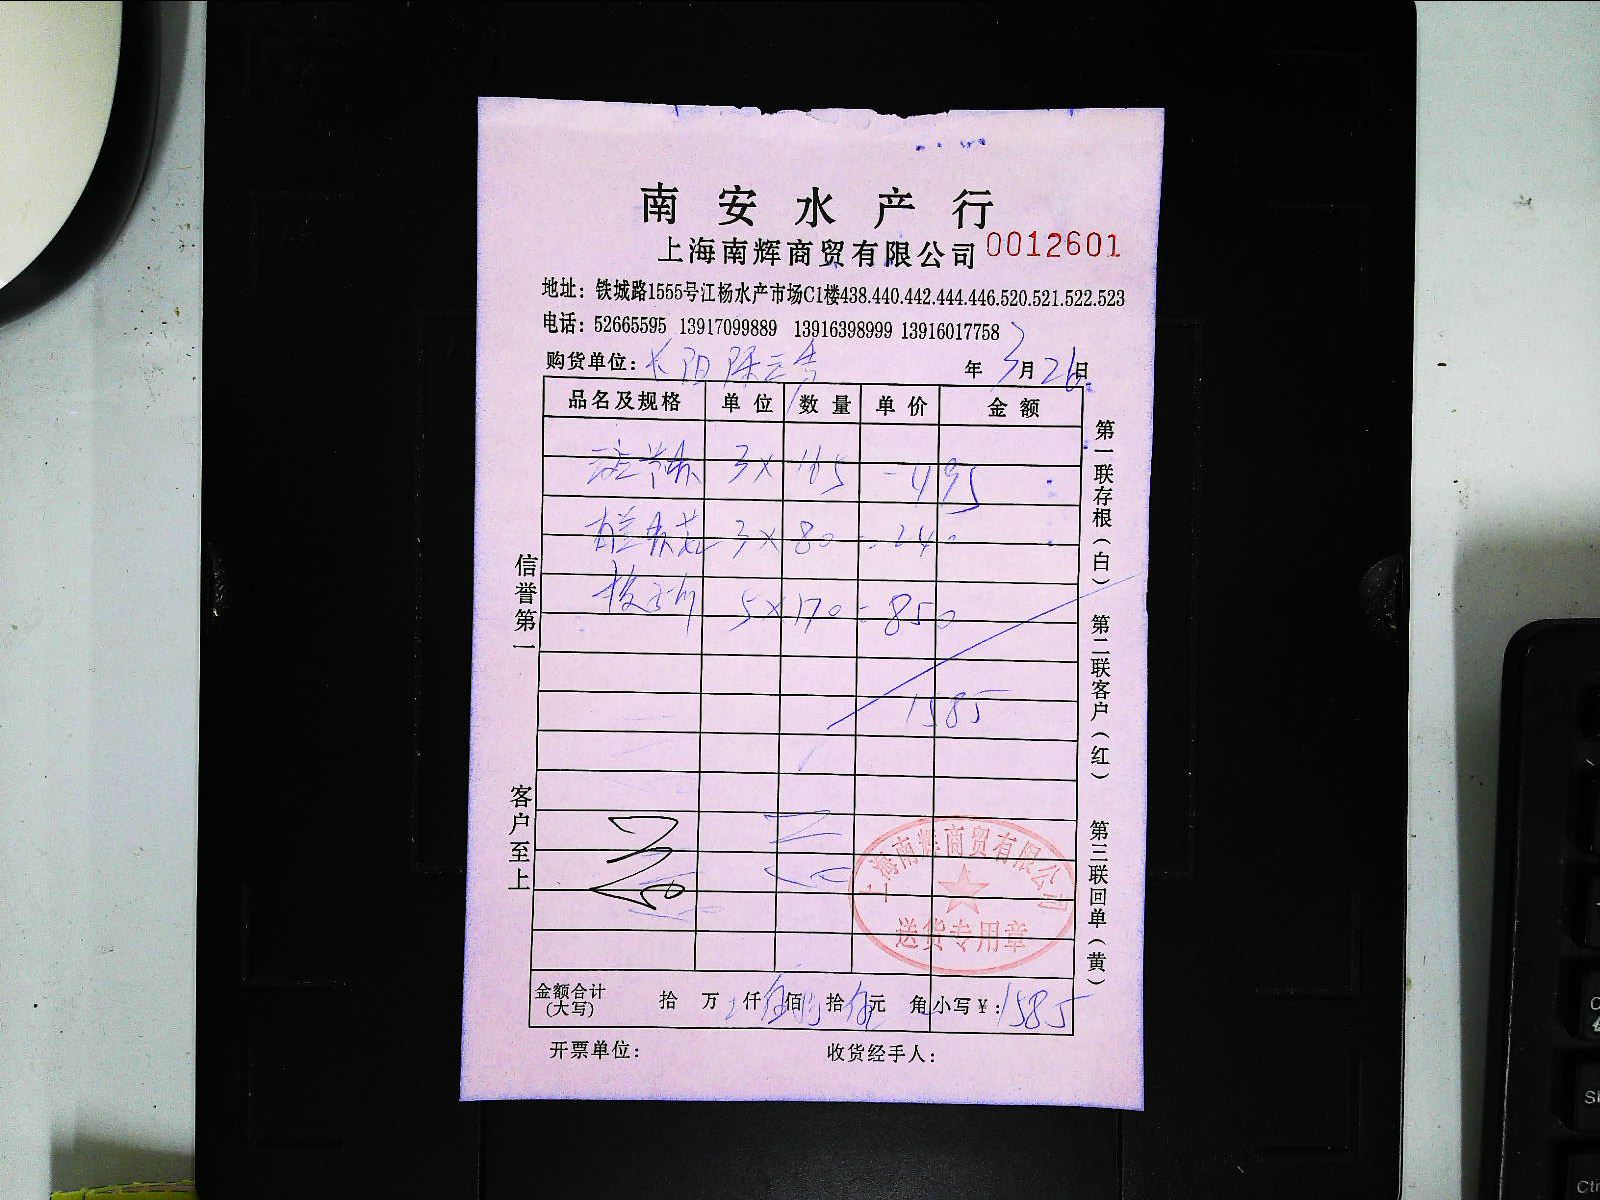 南安水产行
上海南辉商贸有限公司 0012601
地址：铁城路1555号江杨水产市场C1楼438.440.442.444.446.520.521.522.523
电话：52665595 13917099889 13916398999 13916017758
购货单位： 年 3月26日
品名及规格 单位 数量 单价 金额
3×165 495
3×80 = 240
5×170 = 850
1585
金额合计(大写) 拾 万 仟 伍佰 拾 伍元 角 小写¥：1585
开票单位： 收货经手人：
信誉第一
客户至上
第一联存根(白) 第二联客户(红) 第三联回单(黄)
上海南辉商贸有限公司
送货专用章